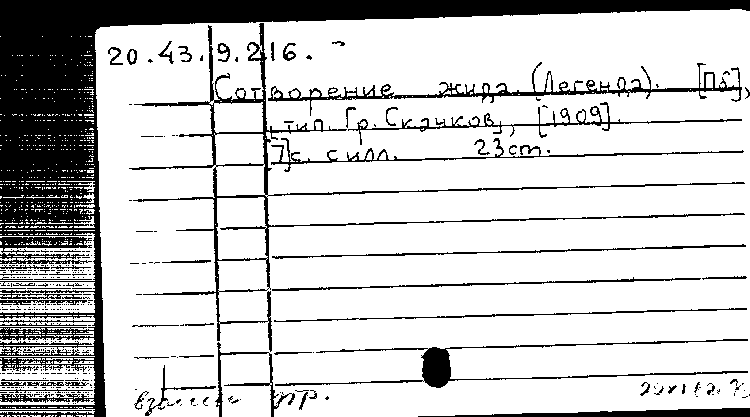 20.43.9.216.
Сотворение жида. (Легенда). [Пб],
тип. Гр. Скачков, [1909].
[7]с. с илл. 23cm.
взамен утр.